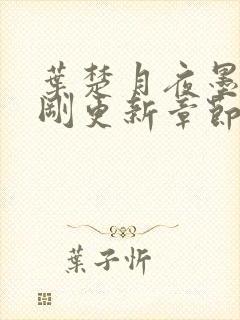 葉楚月夜墨
剛更新章節
葉子忻